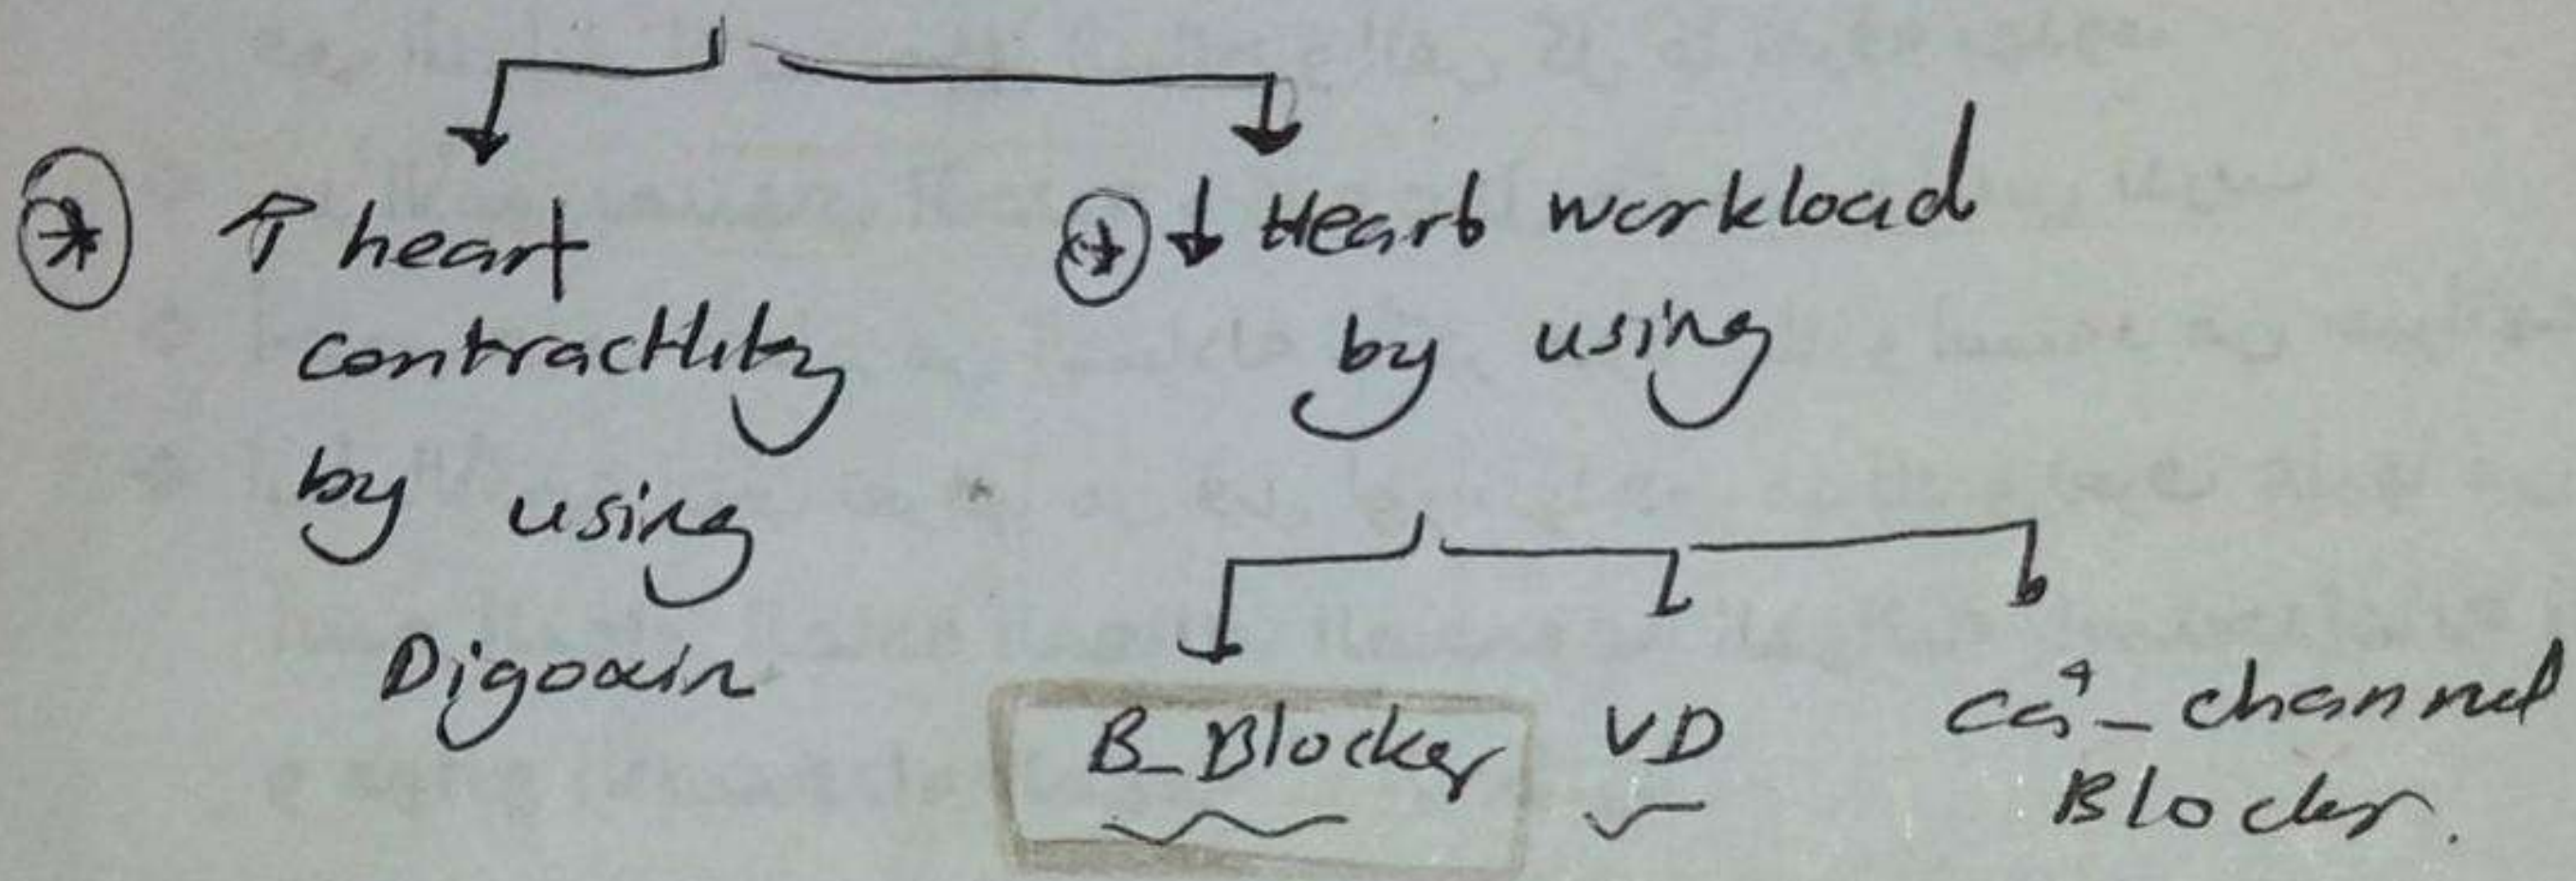 ↑ heart
contractility
by using
Digoxin
↓ Heart workload
by using
B_Blocker
VD
Ca+_channel
Blocker.